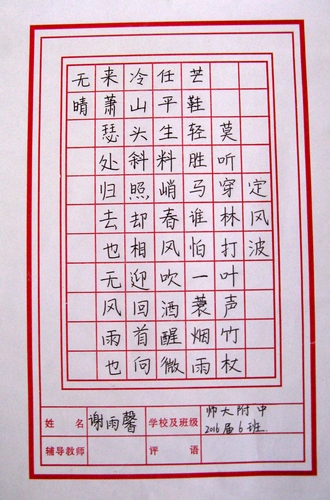 定风波
莫听穿林打叶声竹杖
芒鞋轻胜马谁怕一蓑烟雨
任平生料峭春风吹酒醒微
冷山头斜照却相迎回首向
来萧瑟处归去也无风雨也
无晴
姓名 谢雨馨 学校及班级 师大附中
2016届6班.
辅导教师 评语